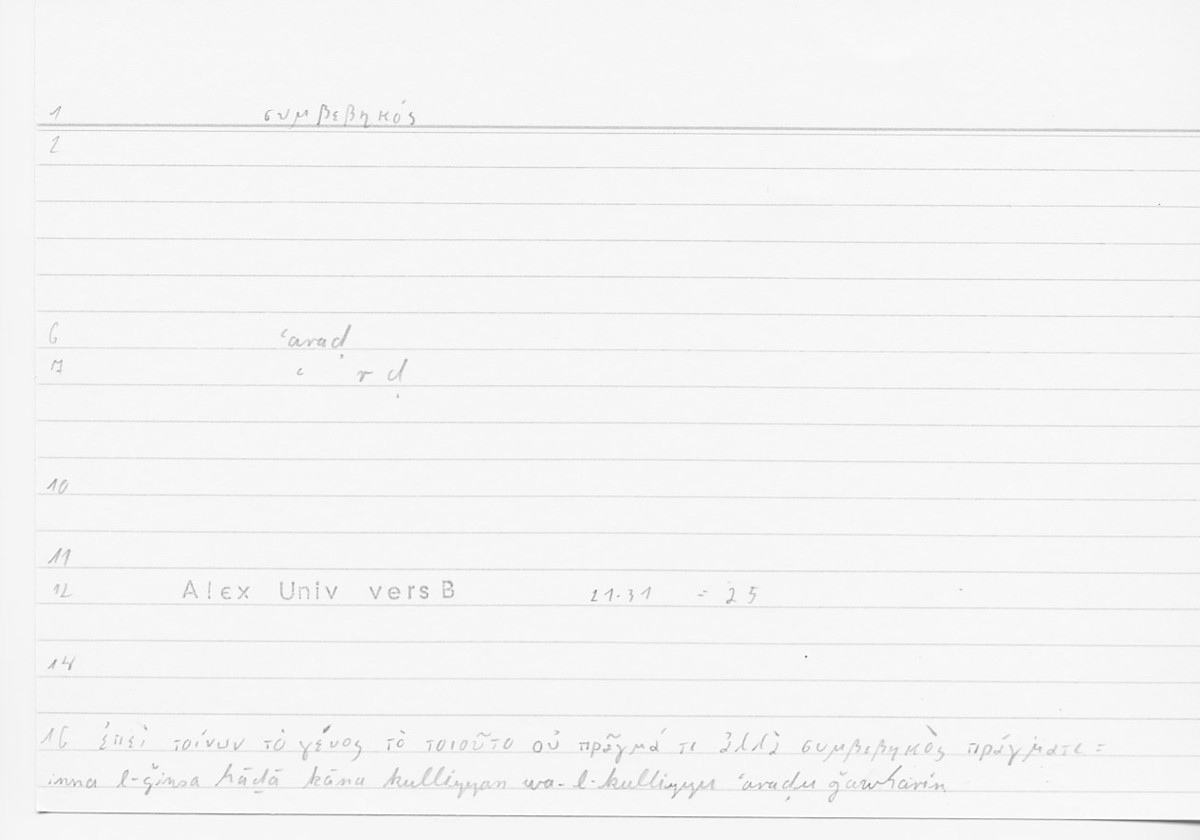 1 συμβεβηκός
2
6 ʿaraḍ
7 ʿ r ḍ
10
11
12 Alex Univ vers B 21.31 = 25
14
16 ἐπεὶ τοίνυν τὸ γένος τὸ τοιοῦτο οὐ πρᾶγμά τι ἀλλὰ συμβεβηκὸς πράγματι =
inna l-ǧinsa hāḏā kāna kulliyyan wa-l-kulliyyu ʿaraḍu ǧawharin